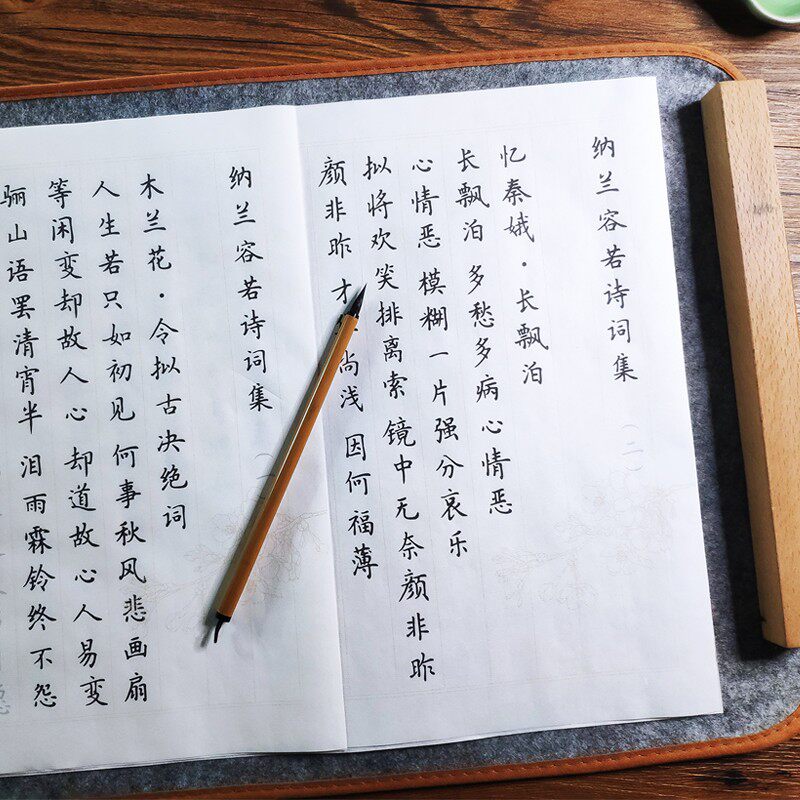 纳兰容若诗词集（二）
忆秦娥·长飘泊
长飘泊 多愁多病心情恶
心情恶 模糊一片强分哀乐
拟将欢笑排离索 镜中无奈颜非昨
颜非昨 才 尚浅 因何福薄
纳兰容若诗词集
木兰花·令拟古决绝词
人生若只如初见 何事秋风悲画扇
等闲变却故人心 却道故心人易变
骊山语罢清宵半 泪雨霖铃终不怨